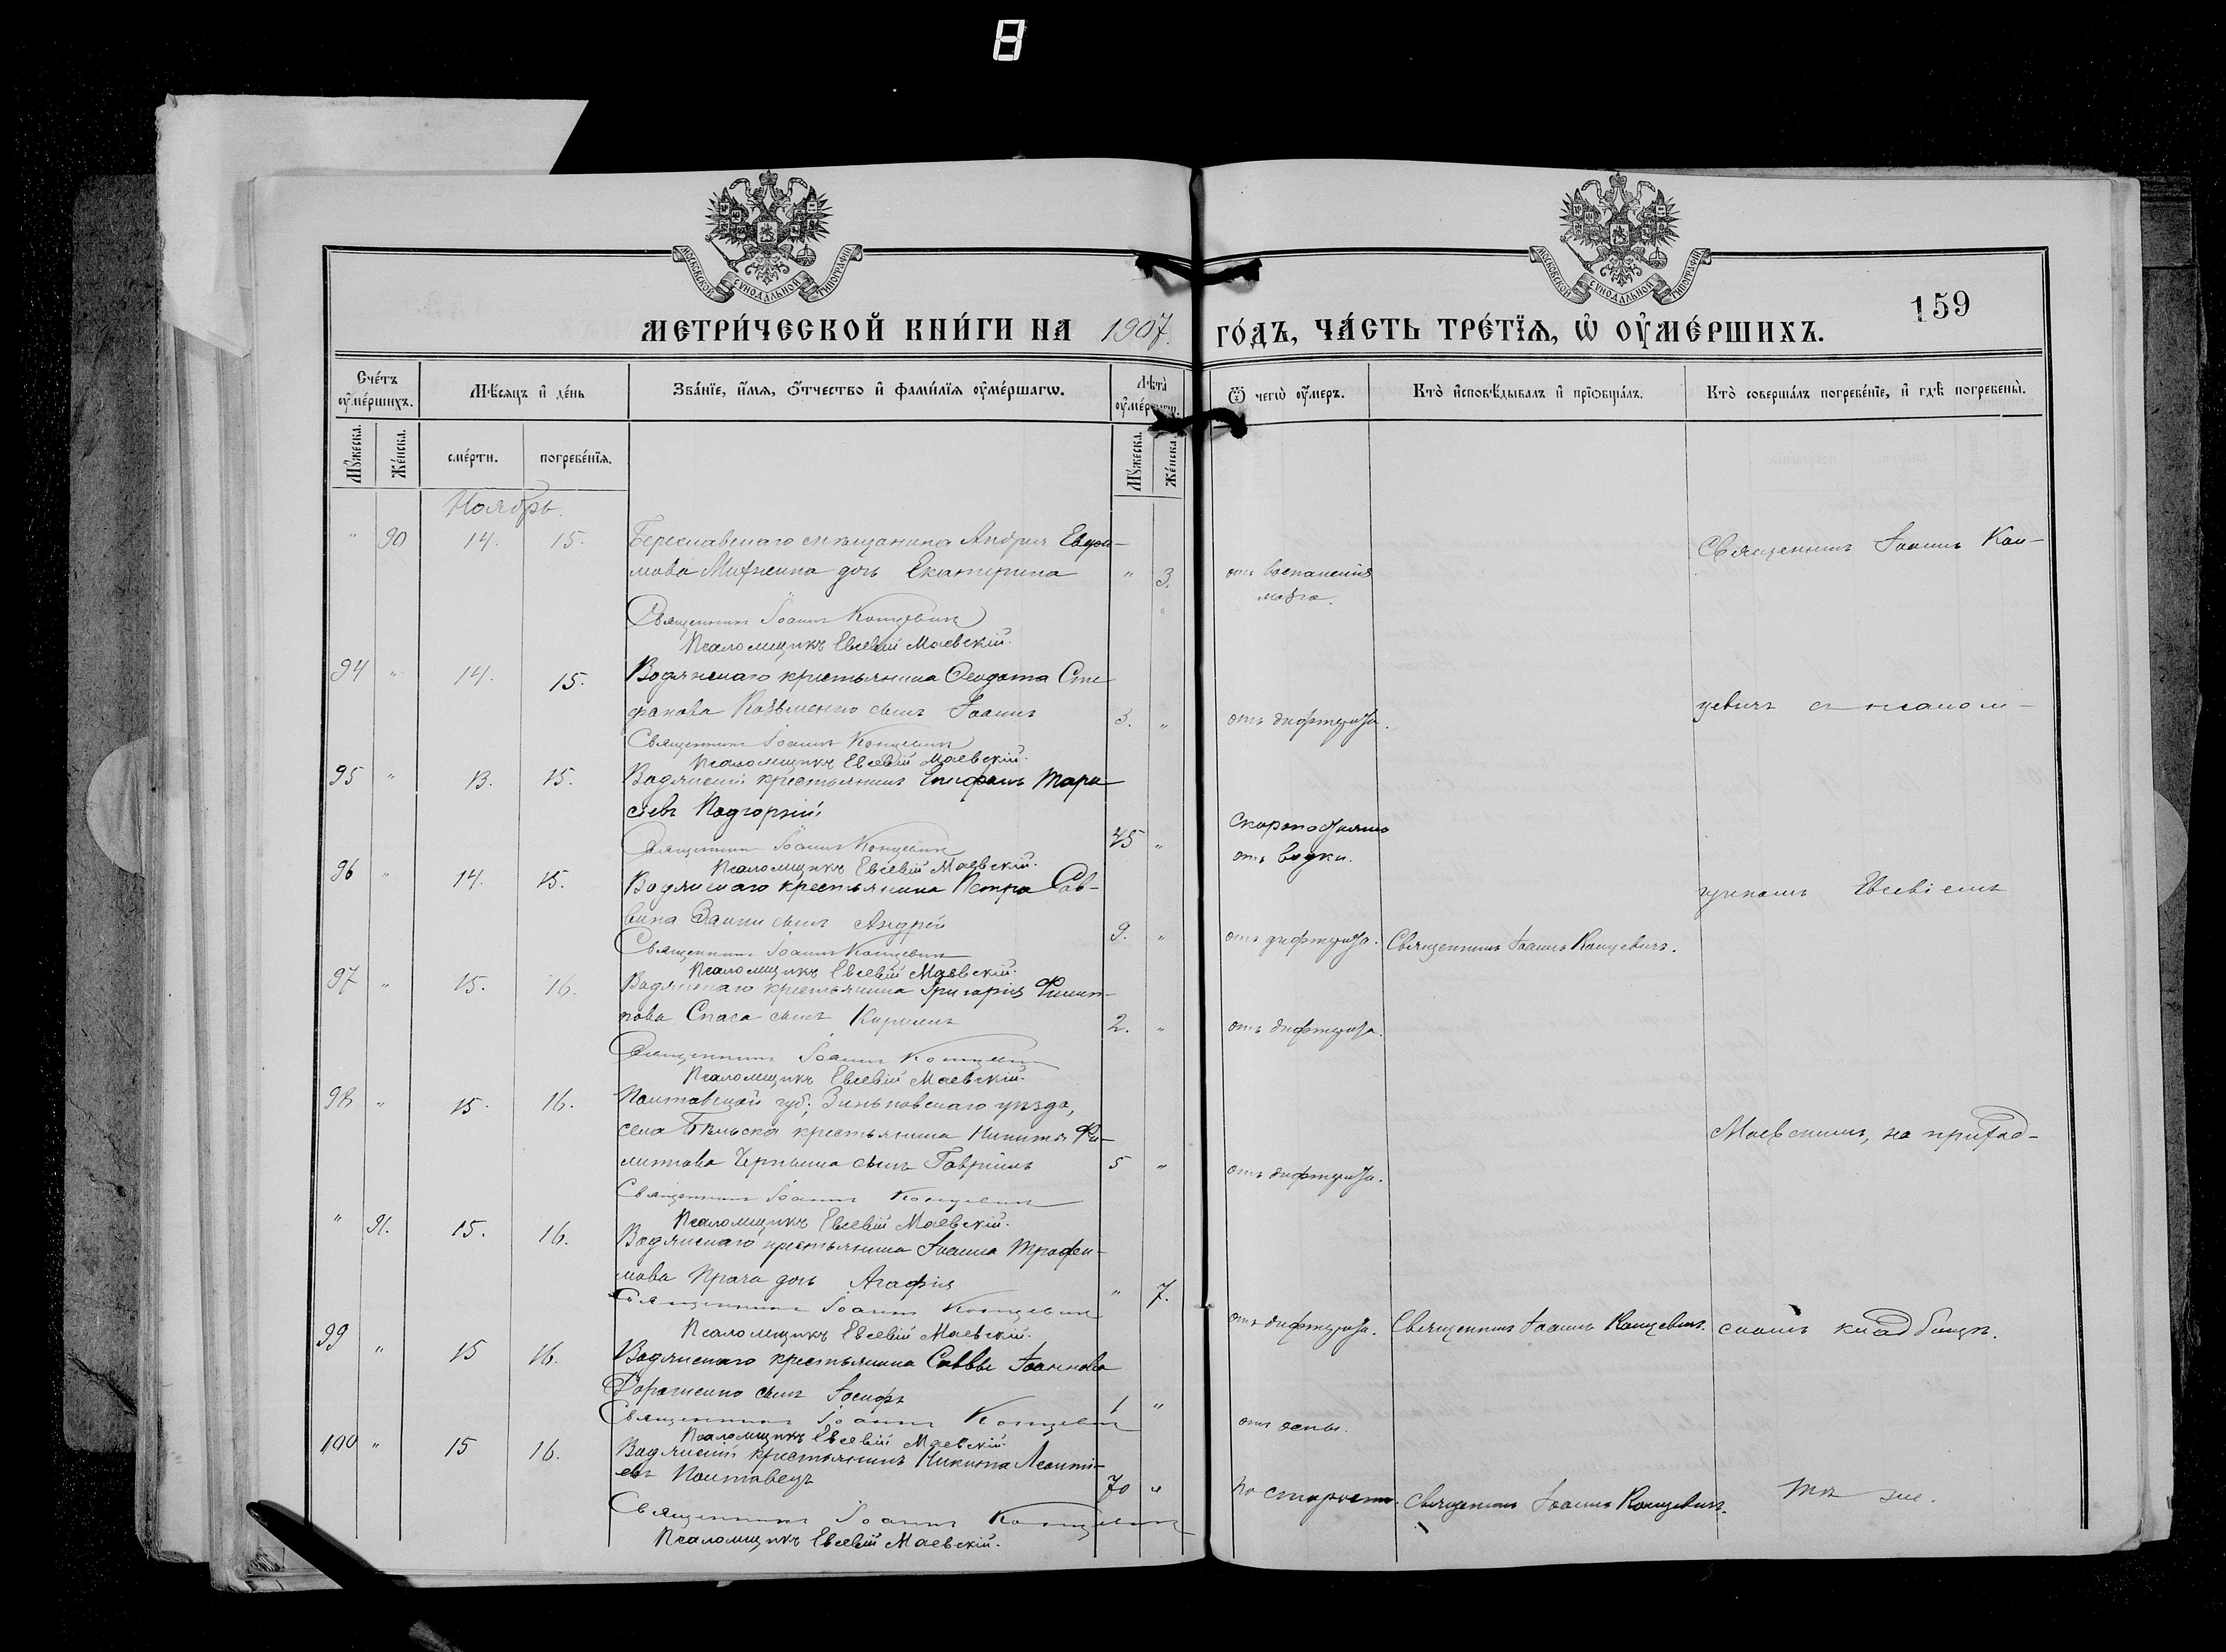 МОСКОВСКОЙ СУНОДАЛЬНОЙ ТИПОГРАФІИ
МОСКОВСКОЙ СУНОДАЛЬНОЙ ТИПОГРАФІИ
159
МЕТРИ́ЧЕСКОЙ КНИ́ГИ НА 1907 ГО́ДЪ, ЧА́СТЬ ТРЕ́ТЇѦ, Ѽ ОУ҆МЕ́РШИХЪ.
Сче́тъ оу҆ме́ршихъ.
Мѣ́сѧцъ и҆ де́нь
Зва́нїе, и҆́мѧ, ѻ҆́тчество и҆ фами́лїѧ оу҆ме́ршагѡ.
Лѣ́та оу҆ме́ршагѡ.
Ѿ чегѡ̀ оу҆́меръ.
Кто̀ и҆сповѣ́дывалъ и҆ прїѡбща́лъ.
Кто̀ соверша́лъ погребе́нїе, и҆ гдѣ̀ погребены̀.
Мꙋ́жеска.
Же́нска.
сме́рти.
погребе́нїѧ.
Мꙋ́жеска.
Же́нска.
Ноябрь.
" 90 14. 15. Береславскаго мѣщанина Андрея Евѳи-
мова Михненка дочь Екатерина " 3. отъ воспаленія
мозга.
Священникъ Іоаннъ Кон-
Священникъ Іоаннъ Концевичъ
Псаломщикъ Евсевій Маевскій.
94 " 14. 15. Водянскаго крестьянина Ѳеодота Сте
фанова Козьменко сынъ Іоаннъ 3. " отъ дифтерита.
цевичъ съ псалом-
Священникъ Іоаннъ Концевичъ
Псаломщикъ Евсевій Маевскій.
95 " 13. 15. Водянскій крестьянинъ Епифанъ Тара
сіевъ Подгорній 45 " Скоропостижно
отъ водки.
Священникъ Іоаннъ Концевичъ
Псаломщикъ Евсевій Маевскій.
96 " 14. 15. Водянскаго крестьянина Петра Сав-
вина Заики сынъ Андрей 9. " отъ дифтерита. Священникъ Іоаннъ Концевичъ.
щикомъ Евсевіемъ
Священникъ Іоаннъ Концевичъ
Псаломщикъ Евсевій Маевскій.
97 " 15. 16. Водянскаго крестьянина Григорія Филип-
пова Спаса сынъ Кириллъ 2. " отъ дифтерита.
Священникъ Іоаннъ Концевичъ
Псаломщикъ Евсевій Маевскій.
98 " 15. 16. Полтавской губ., Зиньковскаго уѣзда,
села Бѣльска крестьянина Никиты Фи-
липпова сынъ Гавріилъ 5 " отъ дифтерита.
Маевскимъ, на приход-
Священникъ Іоаннъ Концевичъ
Псаломщикъ Евсевій Маевскій.
" 91. 15. 16. Водянскаго крестьянина Іоанна Трофи-
мова Прача дочь Агафія " 7. отъ дифтерита. Священникъ Іоаннъ Концевичъ. скомъ кладбищѣ.
Священникъ Іоаннъ Концевичъ
Псаломщикъ Евсевій Маевскій.
99 " 15 16. Водянскаго крестьянина Саввы Іоаннова
Дорошенко сынъ Іосифъ 1 " отъ оспы.
Священникъ Іоаннъ Концевичъ
Псаломщикъ Евсевій Маевскій.
100 " 15 16. Водянскій крестьянинъ Никита Леонті-
евъ Полтавецъ 70 " по старости. Священникъ Іоаннъ Концевичъ. Тѣ же.
Священникъ Іоаннъ Концевичъ
Псаломщикъ Евсевій Маевскій.